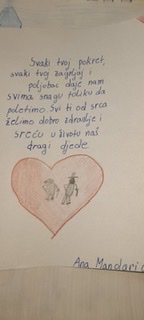 Svaki tvoj pokret,
svaki tvoj zagrljaj i
poljubac daje nam
svima snagu toliku da
poletimo. Svi ti od srca
želimo dobro zdravlje i
sreću u životu naš
dragi djede
Ana Mandarić